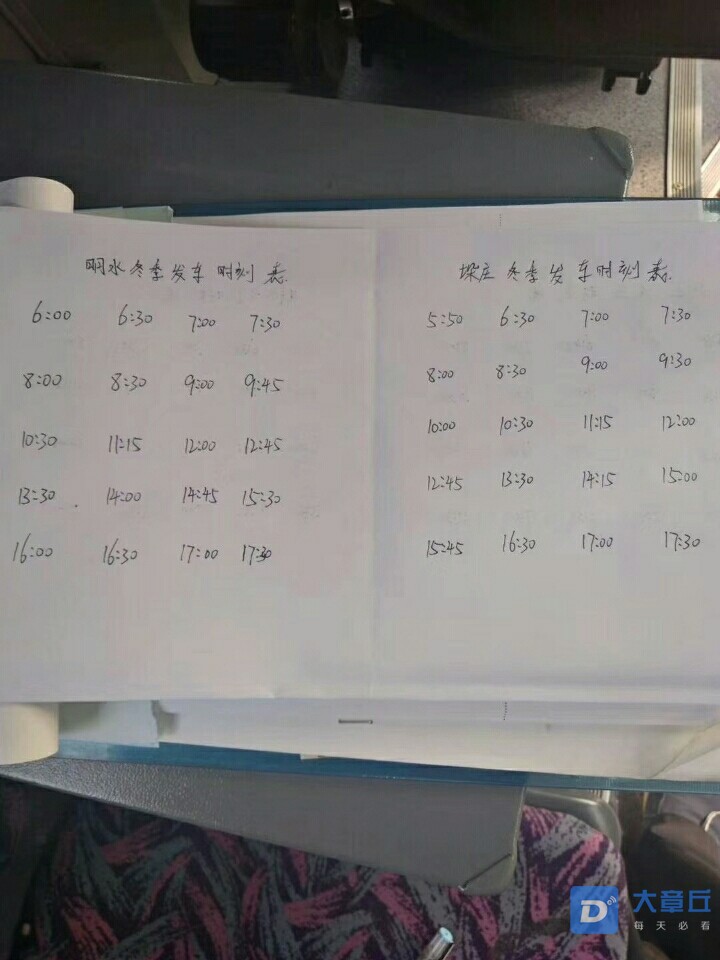 明水冬季发车时刻表
6:00 6:30 7:00 7:30
8:00 8:30 9:00 9:45
10:30 11:15 12:00 12:45
13:30 14:00 14:45 15:30
16:00 16:30 17:00 17:30
垛庄冬季发车时刻表
5:50 6:30 7:00 7:30
8:00 8:30 9:00 9:30
10:00 10:30 11:15 12:00
12:45 13:30 14:15 15:00
15:45 16:30 17:00 17:30
大章丘
每天必看